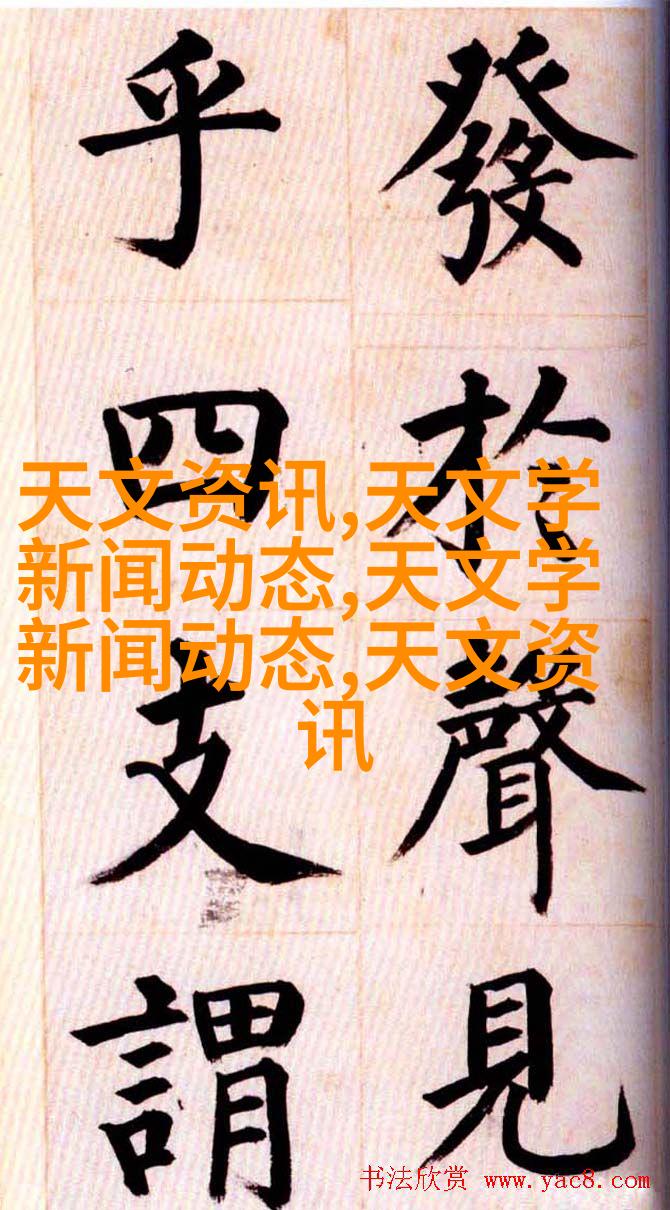 發於聲見
乎四支謂
天文资讯,天文学
新闻动态,天文学
新闻动态,天文资
讯
书法欣赏 www.yac8.com